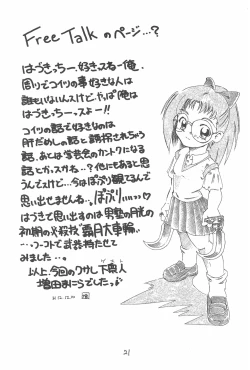 Free Talk のページ…?
はづきっちー、好きスねー俺。
周りでコイツの事好きな人は
誰もいないんスけど、やっぱ俺は
はづきっちースよー!!
コイツの話で好きなのは
肝だめしの話と誘拐されちゃう
話、あとは学芸会のカントクになる
話とかっスかね…?他にもあると思
うんでスけど…今はぽぷり観てるんで
思い出せませんね…。ぽぷりいいっっ♡
はづきで思い出すのは男塾の月光の
初期の必殺技"霧月大車輪"
…ってコトで武器持たせて
みました…。
以上、今回のワサし、下奥人
増田まにらでしたっ
21